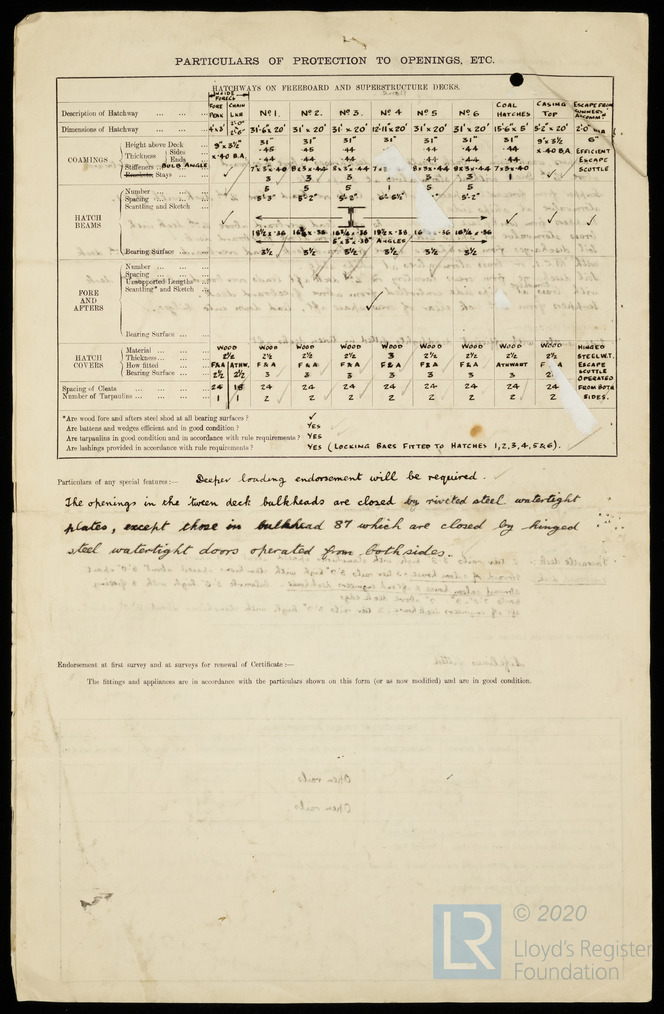 PARTICULARS OF PROTECTION TO OPENINGS, ETC.
HATCHWAYS ON FREEBOARD AND SUPERSTRUCTURE DECKS.
INSIDE FORECS
Description of Hatchway ... ... ... FORE PEAK CHAIN LKR Nº 1. Nº 2. Nº 3. Nº 4 Nº 5 Nº 6 COAL HATCHES CASING TOP ESCAPE FROM
Dimensions of Hatchway ... ... ... 4'x3' 2'-0" 2'-6" 31'-6"x 20' 31'x 20' 31'x 20' 12'-11"x 20' 31'x 20' 31'x 20' 15'-6"x 5' 5'-2"x 20' 2'-0" DIA
COAMINGS
Height above Deck ... 9"x3½" 31" 31" 31" 31" 31" 31" 31" 9"x3½" 6"
Thickness Sides ... x.40 B.A. .45 .45 .44 .44 .44 .44 x.40 B.A EFFICIENT
Ends ... .44 .44 .44 .44 .44 .44 ESCAPE
Stiffeners BULB ANGLE ✓ 7x3x.40 8x3x.44 8x3x.44 8x3x.44 8x3x.44 7x3x.40 SCUTTLE
Brackets, Stays ... 3 3 3 3 3 1 ✓
HATCH BEAMS
Number ... ... ... 5 5 5 1 5 5
Spacing ... ... ... 5'-3" 5'-2" 5'-2" 6'-5½" 5'-2"
Scantling and Sketch ... ✓ ✓ ✓ ✓
16½x.36 .36
ANGLES
Bearing Surface ... ... 3½ 3½ 3½ 3½ 3½ 3½
FORE AND AFTERS
Number ... ... ...
Spacing ... ... ...
Unsupported Lengths* ...
Scantling* and Sketch ... ✓
Bearing Surface ... ...
HATCH COVERS
Material ... ... ... WOOD WOOD WOOD WOOD WOOD WOOD WOOD WOOD WOOD HINGED
Thickness ... ... ... 2½ 2½ 2½ 2½ 3 2½ 2½ 2½ 2½ STEEL W.T.
How fitted ... ... ... F&A ATHW. F & A F & A F & A F & A F & A F & A ATHWART F A ESCAPE
Bearing Surface ... ... 2½ 2½ 3 3 3 3 3 3 3 SCUTTLE
Spacing of Cleats ... ... ... 24 18 24 24 24 24 24 24 24 24 OPERATED FROM BOTH
Number of Tarpaulins ... ... ... 1 1 2 2 2 2 2 2 2 2 SIDES.
*Are wood fore and afters steel shod at all bearing surfaces ? ✓
Are battens and wedges efficient and in good condition ? YES
Are tarpaulins in good condition and in accordance with rule requirements ? YES
Are lashings provided in accordance with rule requirements ? YES (LOCKING BARS FITTED TO HATCHES 1,2,3,4,5&6).
Particulars of any special features:— Deeper loading endorsement will be required.
The openings in the 'tween deck bulkheads are closed by riveted steel watertight
plates, except those in bulkhead 87 which are closed by hinged
steel watertight doors operated from both sides.
Endorsement at first survey and at surveys for renewal of Certificate :—
The fittings and appliances are in accordance with the particulars shown on this form (or as now modified) and are in good condition.
LR © 2020
Lloyd's Register
Foundation